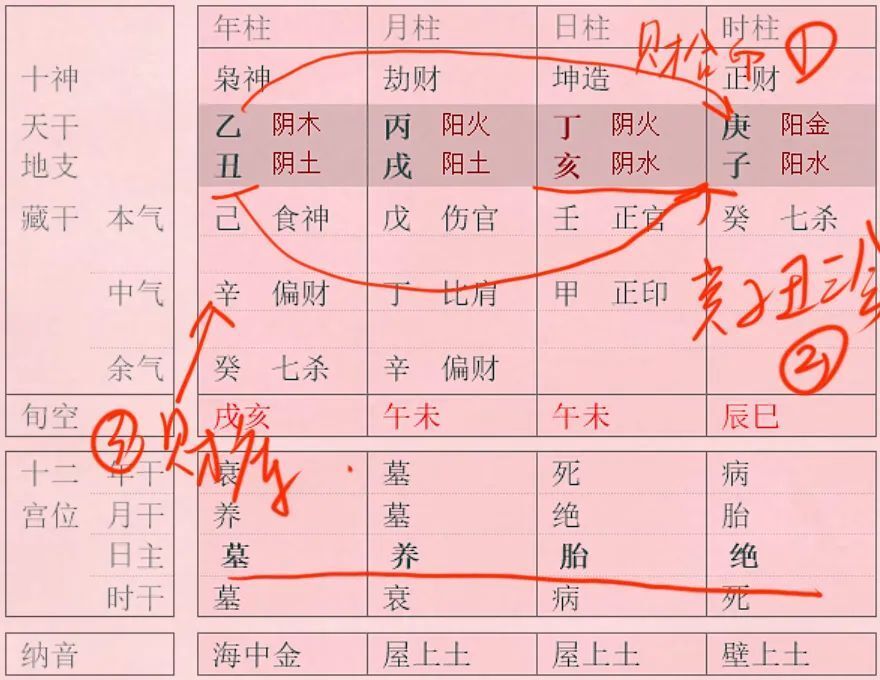 年柱 月柱 日柱 时柱
财合印 ①
十神 枭神 劫财 坤造 正财
天干 乙 阴木 丙 阳火 丁 阴火 庚 阳金
地支 丑 阴土 戌 阳土 亥 阴水 子 阳水
藏干 本气 己 食神 戊 伤官 壬 正官 癸 七杀
亥子丑三会
②
中气 辛 偏财 丁 比肩 甲 正印
余气 癸 七杀 辛 偏财
旬空 戌亥 午未 午未 辰巳
③ 财库
十二 年干 衰 墓 死 病
宫位 月干 养 墓 绝 胎
日主 墓 养 胎 绝
时干 墓 衰 病 死
纳音 海中金 屋上土 屋上土 壁上土